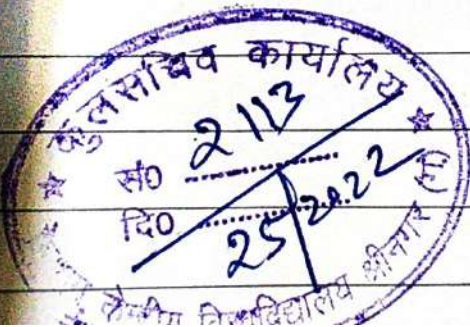 कुलसचिव कार्यालय
सं० 2113
दि० 25
केन्द्रीय विश्वविद्यालय श्रीनगर (ग)